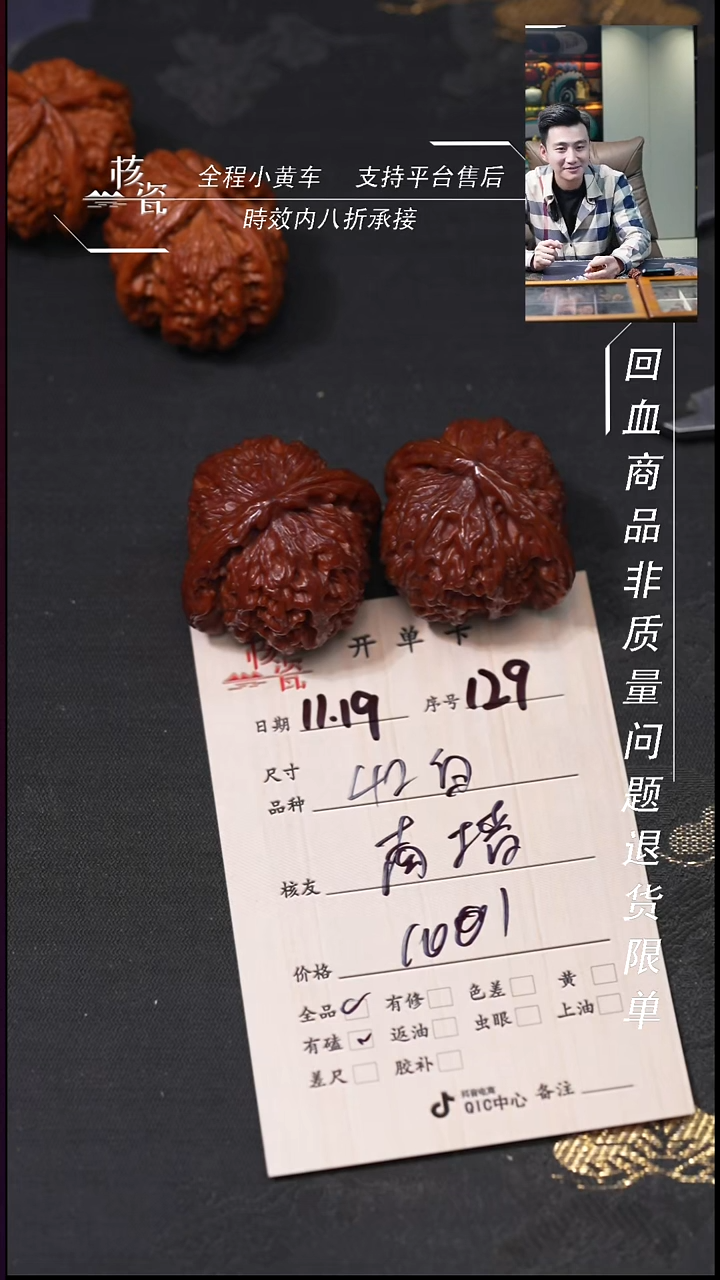 核瓷
全程小黄车 支持平台售后
時效内八折承接
回血商品非质量问题退货限单
核瓷 开单卡
日期 11.19 序号 129
尺寸
品种 42白
核友 南墙
价格 1001
全品 有修 色差 黄
有磕 返油 虫眼 上油
差尺 胶补
抖音电商
QIC中心 备注